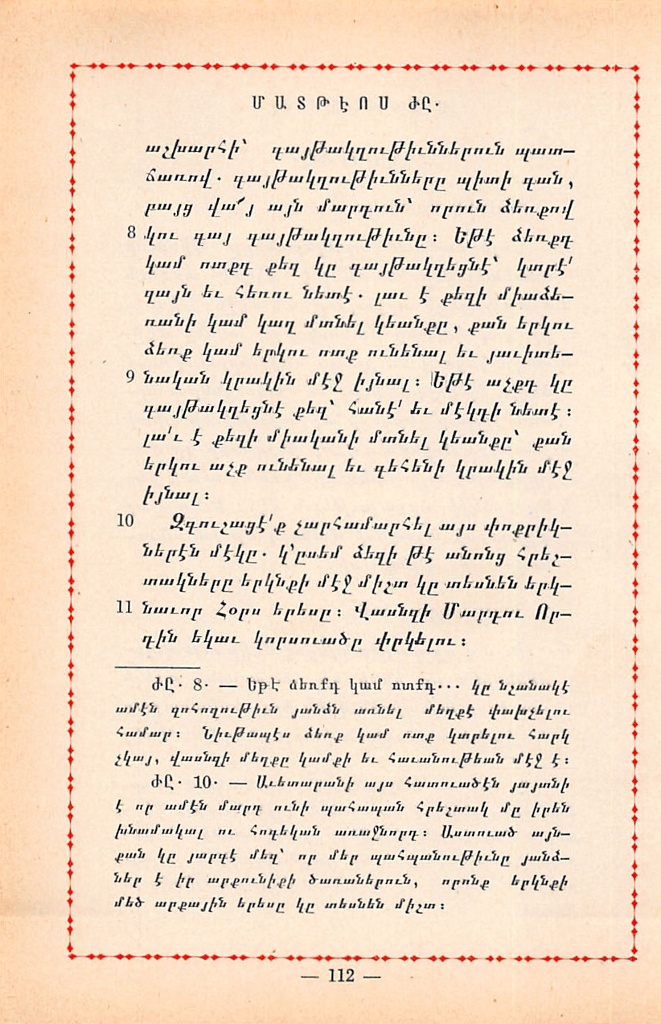 ՄԱՏԹԷՈՍ ԺԸ․
աշխարհի՝ գայթակղութիւններուն պատ–
ճառով․ գայթակղութիւնները պիտի գան,
բայց վա՜յ այն մարդուն՝ որուն ձեռքով
8 կու գայ գայթակղութիւնը։ Եթէ ձեռքդ
կամ ոտքդ քեզ կը գայթակղեցնէ՝ կտրէ՛
զայն եւ հեռու նետէ․ լաւ է քեզի միաձե–
ռանի կամ կաղ մտնել կեանքը, քան երկու
ձեռք կամ երկու ոտք ունենալ եւ յաւիտե–
9 նական կրակին մէջ իյնալ։ Եթէ աչքդ կը
գայթակղեցնէ քեզ՝ հանէ՛ եւ մէկդի նետէ։
լա՛ւ է քեզի միականի մտնել կեանքը՝ քան
երկու աչք ունենալ եւ գեհենի կրակին մէջ
իյնալ։
10 Զգուշացէ՛ք չարհամարհել այս փոքրիկ–
ներէն մէկը․ կ՚ըսեմ ձեզի թէ անոնց հրեշ–
տակները երկնքի մէջ միշտ կը տեսնեն երկ–
11 նաւոր Հօրս երեսը։ Վասնզի Մարդու Որ–
դին եկաւ կորսուածը փրկելու։
ԺԸ․ 8․ — Եթէ ձեռքդ կամ ոտքդ... կը նշանակէ
ամէն զոհողութիւն յանձն առնել մեղքէ փախչելու
համար։ Նիւթապէս ձեռք կամ ոտք կտրելու հարկ
չկայ, վասնզի մեղքը կամքի եւ հաւանութեան մէջ է։
ԺԸ․ 10․ — Աւետարանի այս հատուածէն յայտնի
է որ ամէն մարդ ունի պահապան հրեշտակ մը իրեն
խնամակալ ու հոգեկան առաջնորդ։ Աստուած այն–
քան կը յարգէ մեզ՝ որ մեր պահպանութիւնը յանձ–
ներ է իր արքունիքի ծառաներուն, որոնք երկնքի
մեծ արքային երեսը կը տեսնեն միշտ։
— 112 —